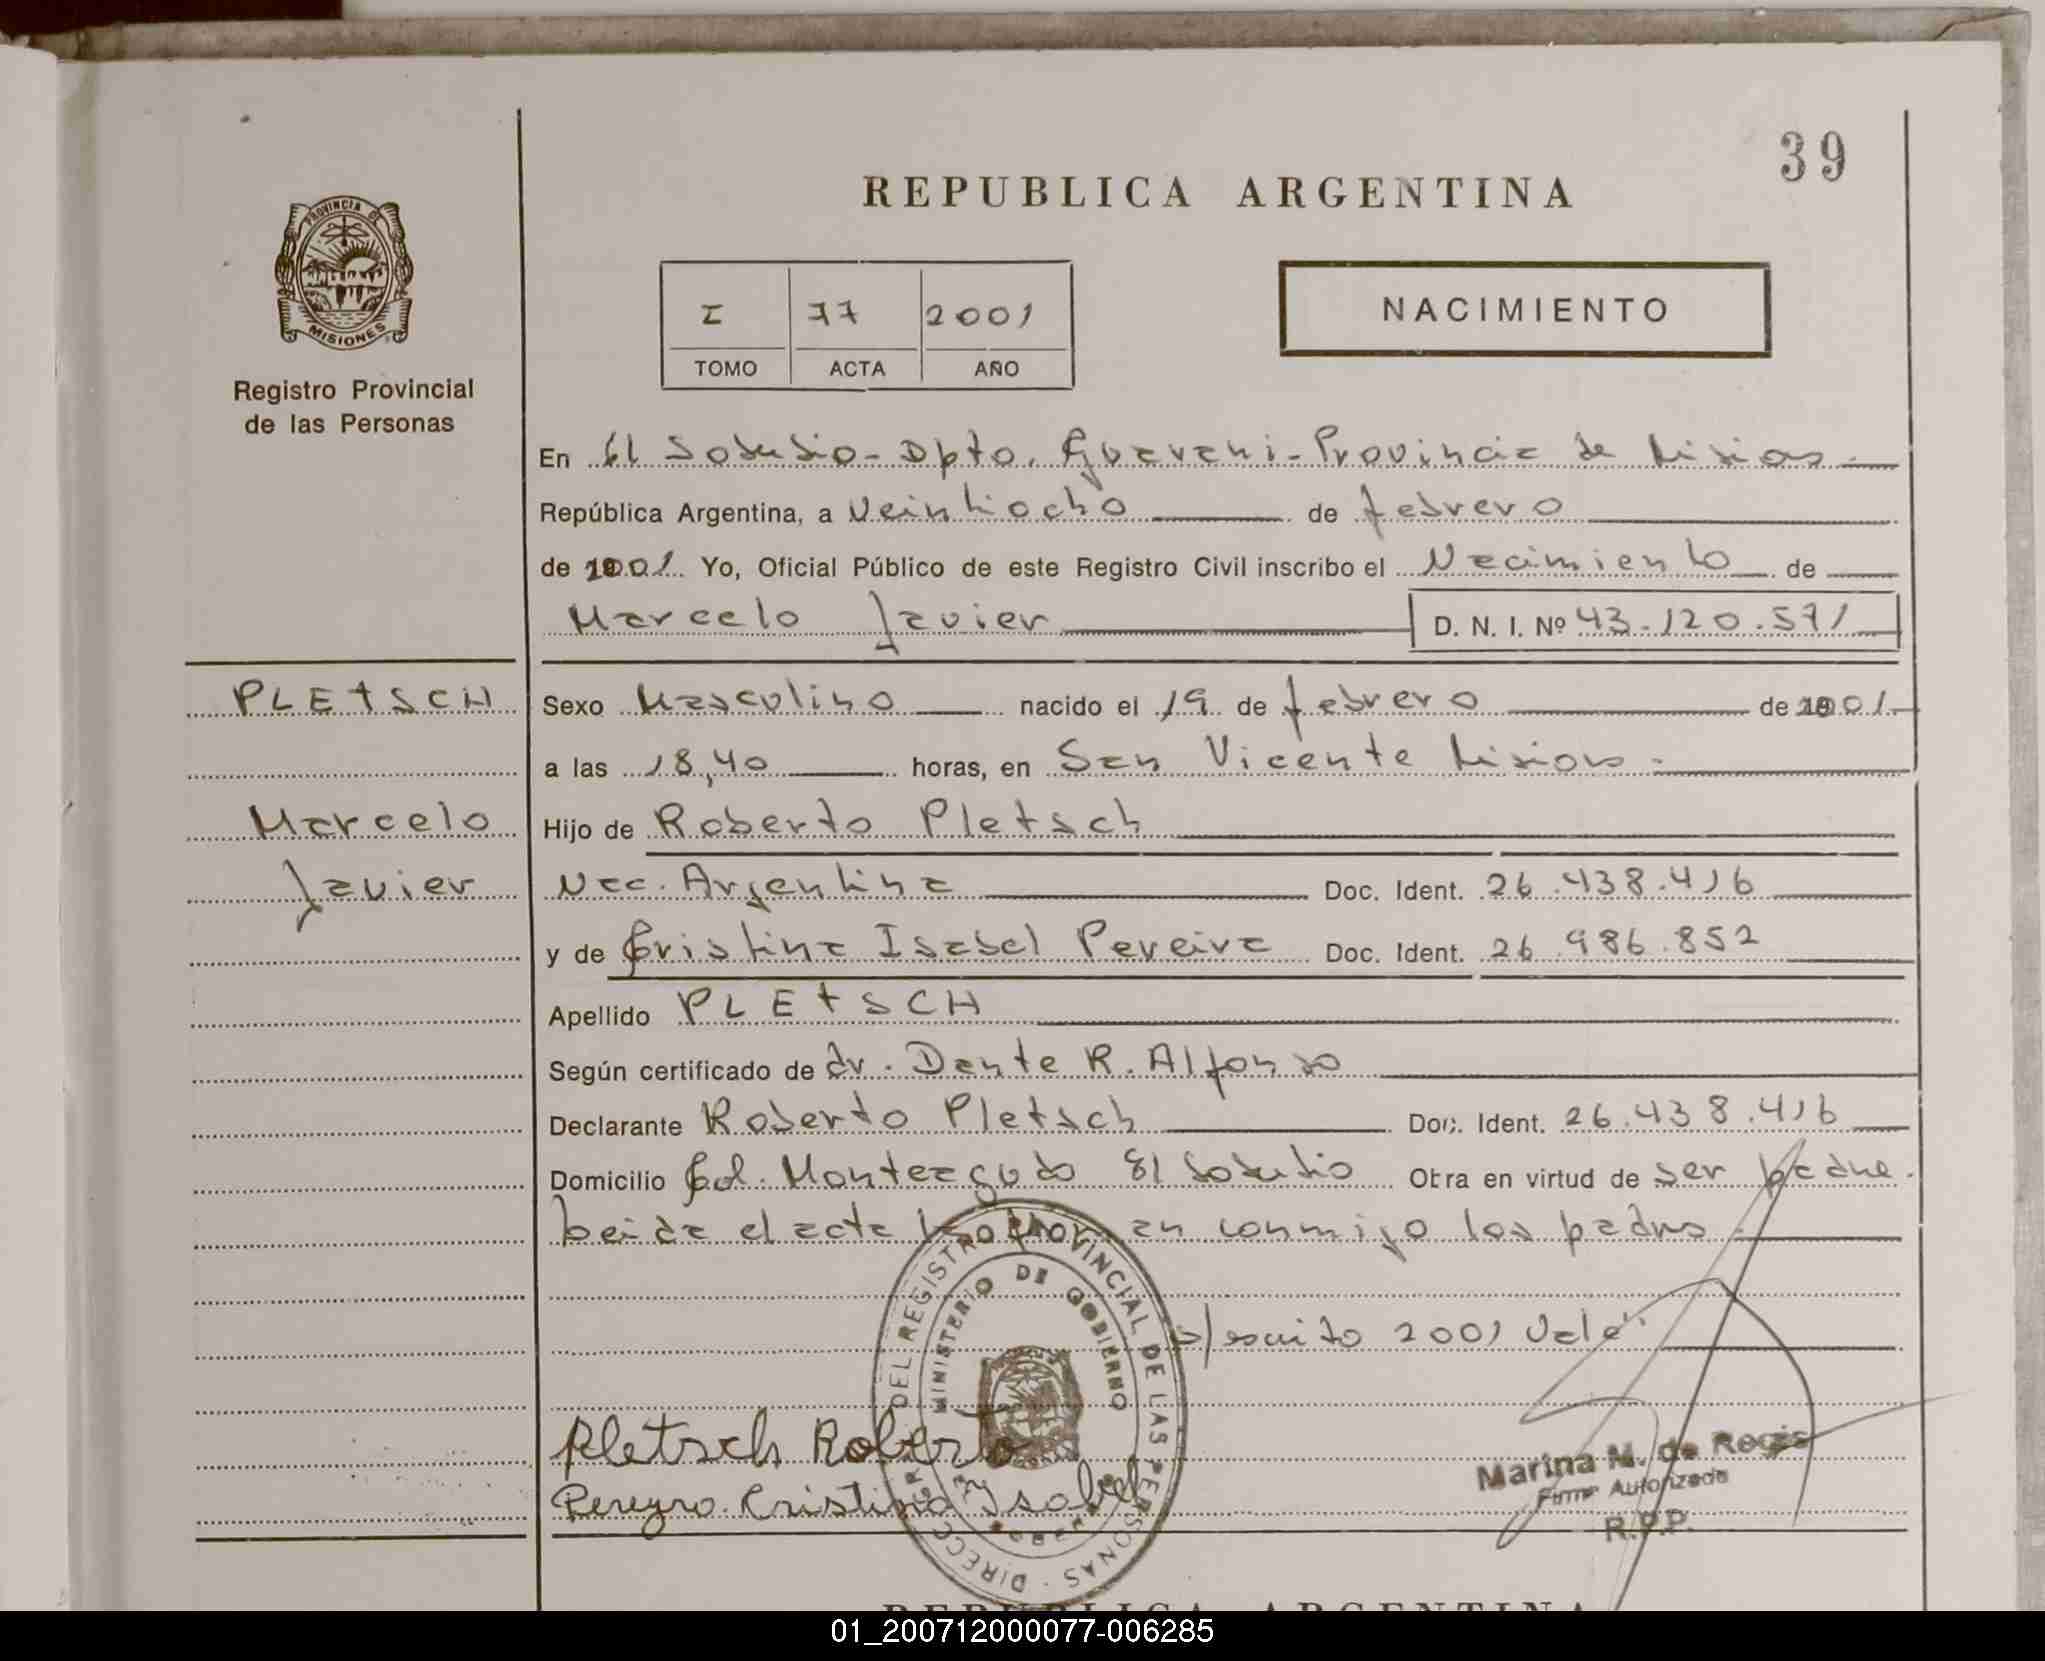 39
REPUBLICA ARGENTINA
PROVINCIA DE
MISIONES
Registro Provincial
de las Personas
I 77 2001
TOMO ACTA AÑO
NACIMIENTO
En El Soberbio - Dpto. Guarani - Provincia de Misiones
República Argentina, a Veintiocho de febrero
de 2001 Yo, Oficial Público de este Registro Civil inscribo el Nacimiento de
Marcelo Javier D. N. I. Nº 43.120.571
PLETSCH
Marcelo
Javier
Sexo Masculino nacido el 19 de febrero de 2001
a las 18,40 horas, en San Vicente Misiones.
Hijo de Roberto Pletsch
Nac. Argentina Doc. Ident. 26.438.416
y de Cristina Isabel Pereira Doc. Ident. 26.986.852
Apellido PLETSCH
Según certificado de dr. Dante R. Alfonso
Declarante Roberto Pletsch Doc. Ident. 26.438.416
Domicilio Col. Monteagudo El Soberbio Otra en virtud de ser padre.
Leida el acta la firman conmigo los padres.
s/ escrito 2001 Vale
DIRECC GR DEL REGISTRO PROVINCIAL DE LAS PERSONAS
MINISTERIO DE GOBIERNO
Pletsch Roberto
Pereyra Cristina Isabel
Marina M. de Regis
Firma Autorizada
R.P.P.
REPUBLICA ARGENTINA
01_200712000077-006285